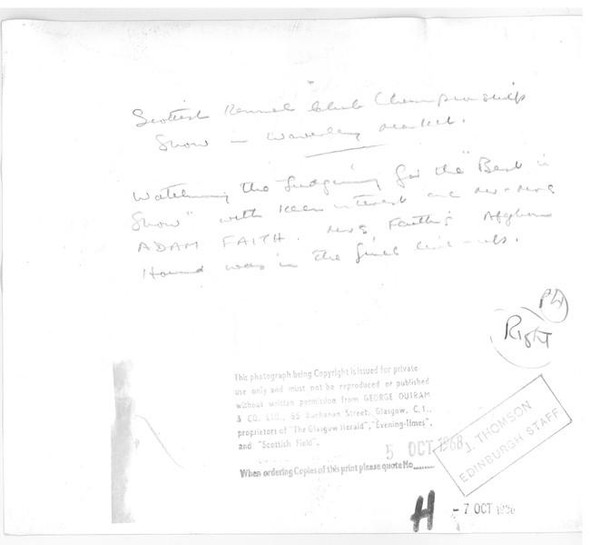 Scottish Kennel Club Championship
Show - Waverley Market.
Watching the Judging for the "Best in
Show" with keen interest are Mr & Mrs
ADAM FAITH. Mrs Faith's Afghan
Hound was in the final
PH
Right
This photograph being Copyright is issued for private
use only and must not be reproduced or published
without written permission from GEORGE OUTRAM
& CO. LTD., 65 Buchanan Street, Glasgow, C.1.,
proprietors of "The Glasgow Herald", "Evening-Times",
and "Scottish Field".
5 OCT 1968
When ordering Copies of this print please quote No
J. THOMSON
EDINBURGH STAFF
H - 7 OCT